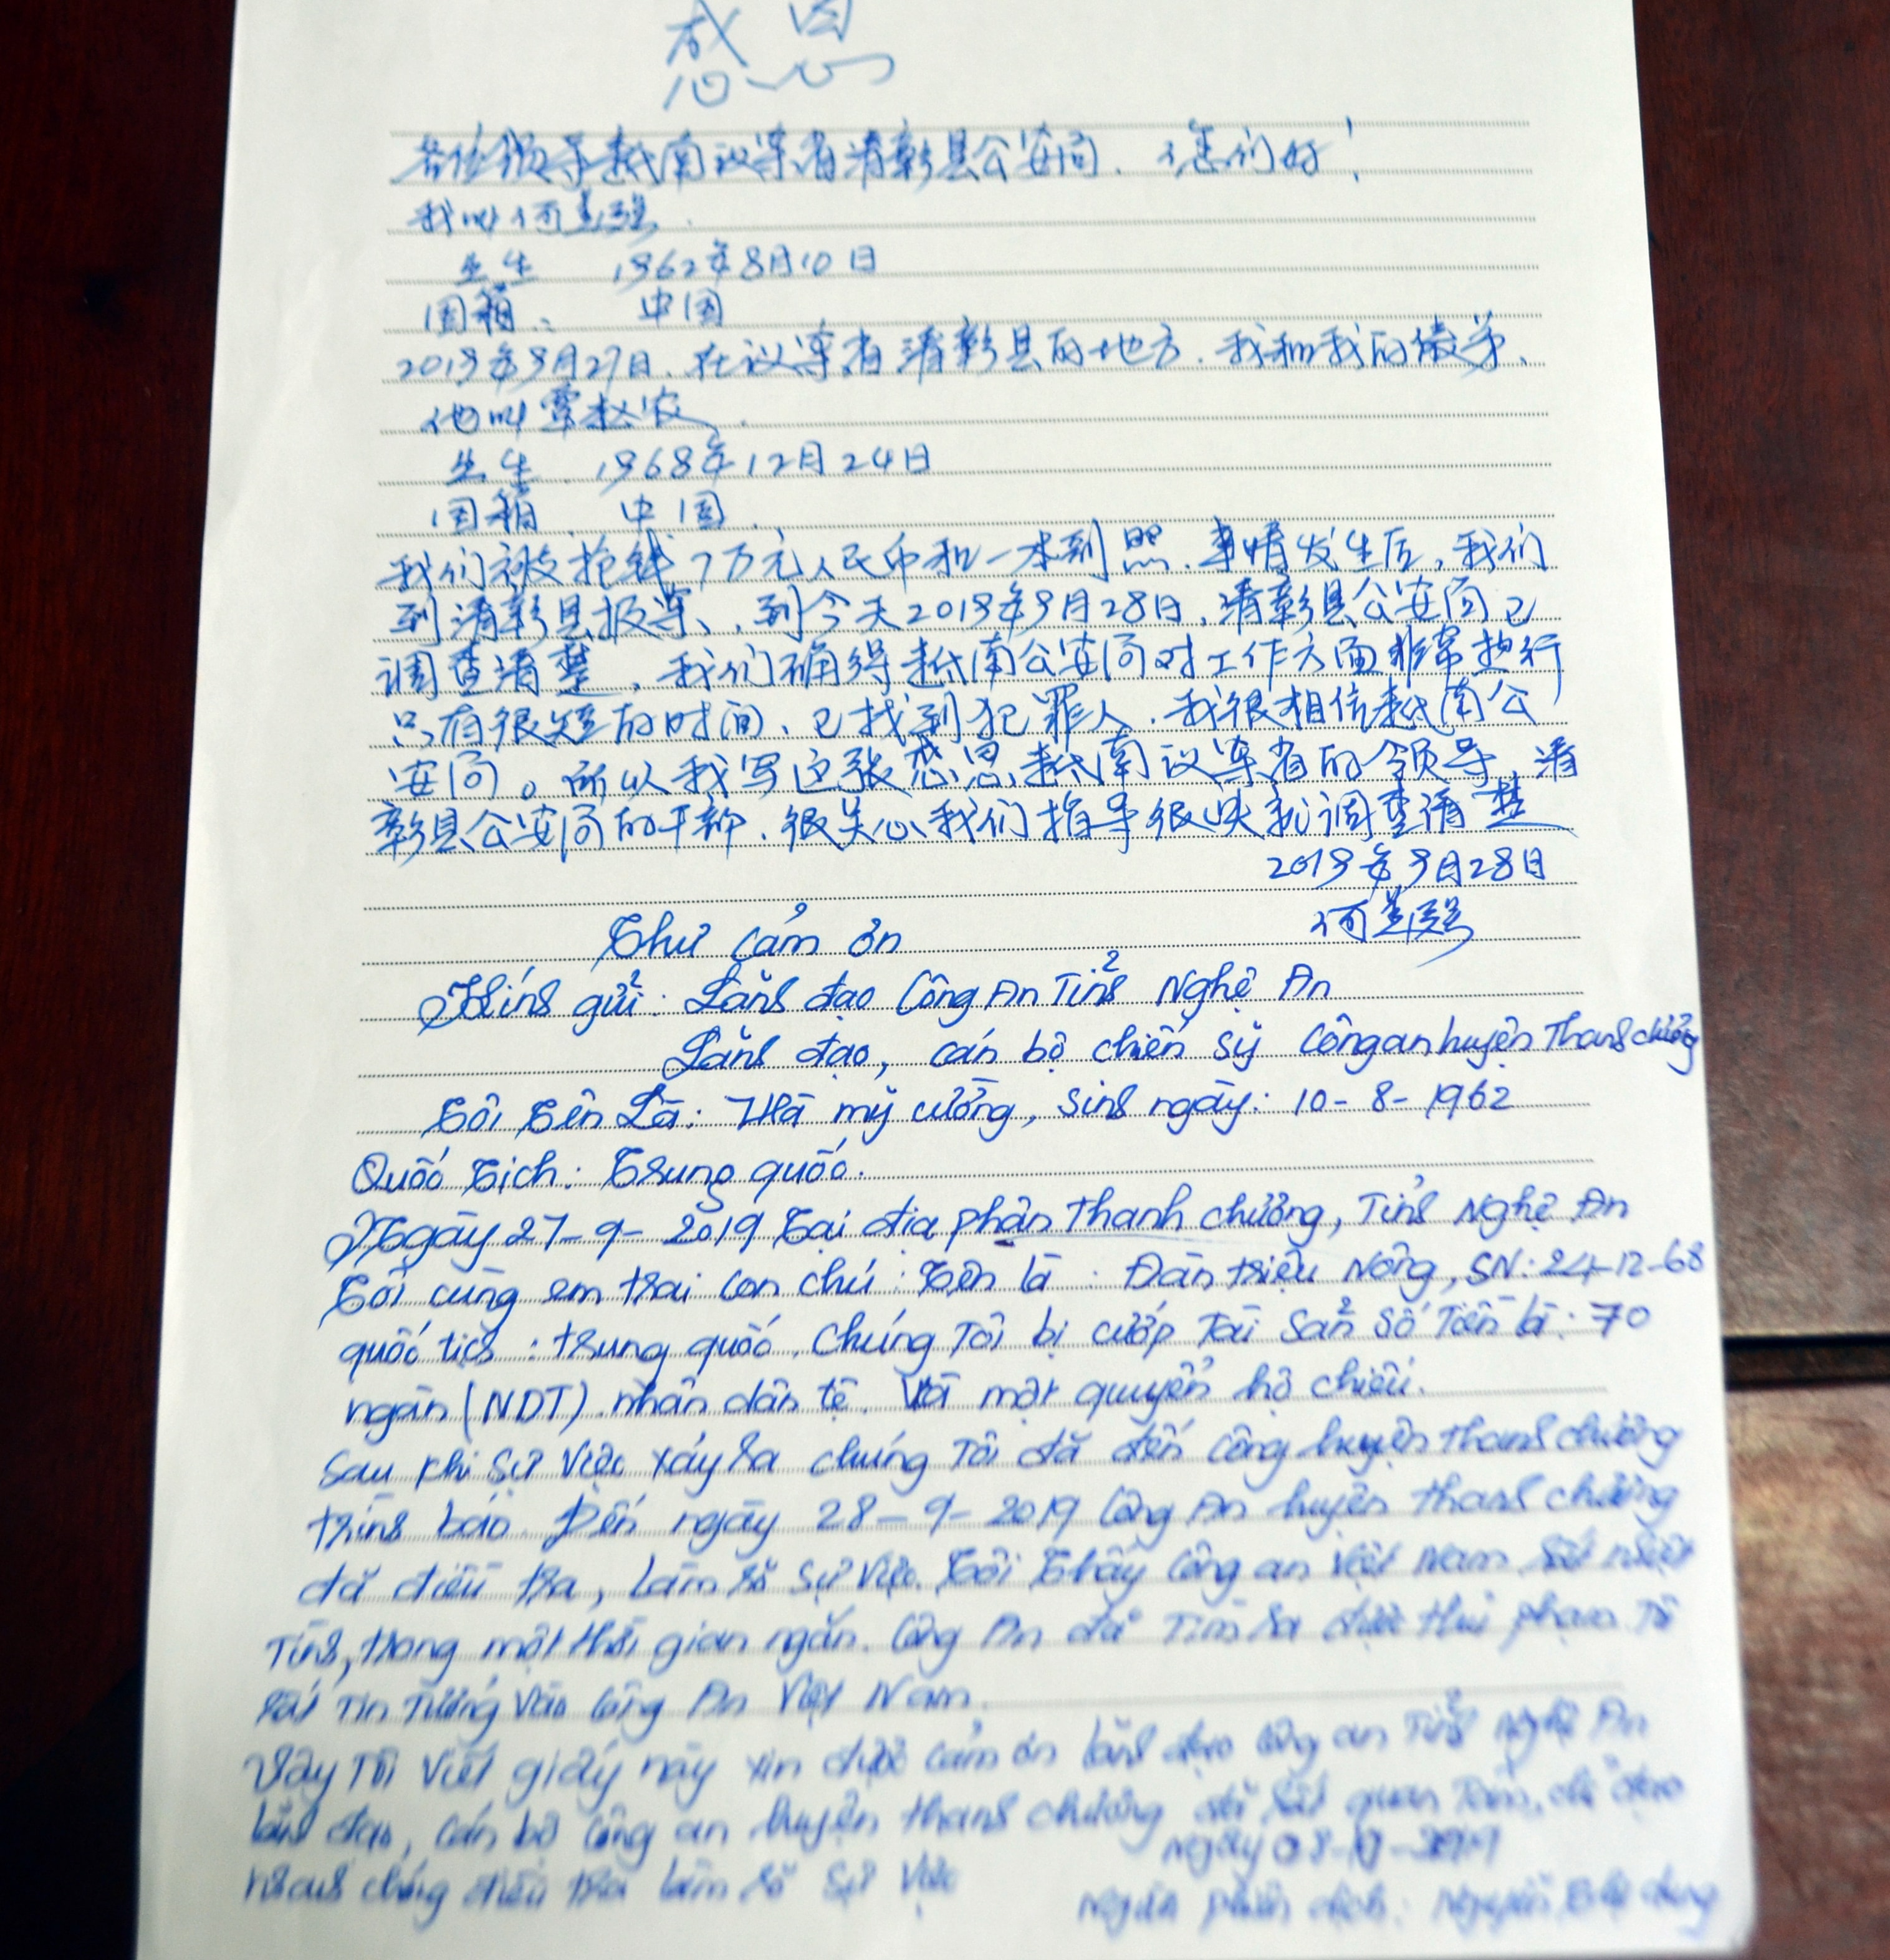 感恩
各位领导越南议安省清彰县公安局. 您们好!
我叫何美强.
出生 1962年8月10日
国籍: 中国
2019年9月27日. 在议安省清彰县的地方. 我和我的
他叫覃赵农.
出生 1968年12月24日
国籍. 中国.
我们被抢钱7万元人民币和一本护照. 事情发生后, 我们
到清彰县报案、到今天2019年9月28日, 清彰县公安局已
调查清楚, 我们确得越南公安局对工作方面非常执行
只有很短的时间、已找到犯罪人. 我很相信越南公
安局。所以我写这张感恩越南议安省的领导, 清
彰县公安局的干部. 很关心我们指导很快就调查清楚
2019年9月28日
何美强
Thư cảm ơn
Kính gửi: Lãnh đạo Công An Tỉnh Nghệ An
Lãnh đạo, cán bộ chiến sỹ Công an huyện Thanh chương
Tôi Tên Là: Hà mỹ cường, sinh ngày: 10-8-1962
Quốc Tịch: Trung quốc.
Ngày 27-9-2019 Tại địa phận Thanh chương, Tỉnh Nghệ An
Tôi cùng em trai con chú: Tên là: Đàn triệu Nông, SN: 24-12-68
quốc tịch: trung quốc. Chúng Tôi bị cướp Tài Sản Số Tiền là: 70
ngàn (NDT) nhân dân tệ. Và một quyển hộ chiếu.
Sau khi Sự Việc xảy ra chúng Tôi đã đến Công huyện Thanh chương
trình báo. Đến ngày 28-9-2019 Công An huyện Thanh chương
đã điều tra, Làm rõ Sự Việc. Tôi Thấy Công an Việt Nam rất nhiệt
Tình, trong một thời gian ngắn. Công An đã Tìm ra được thủ phạm. Tôi
rất Tin Tưởng Vào Công An Việt Nam.
Vậy Tôi Viết giấy này xin được cảm ơn lãnh đạo Công an Tỉnh Nghệ An
lãnh đạo, cán bộ Công an huyện Thanh chương đã rất quan Tâm, chỉ đạo
nhanh chóng điều tra làm rõ Sự Việc
Ngày
Người phiên dịch: Nguyễn